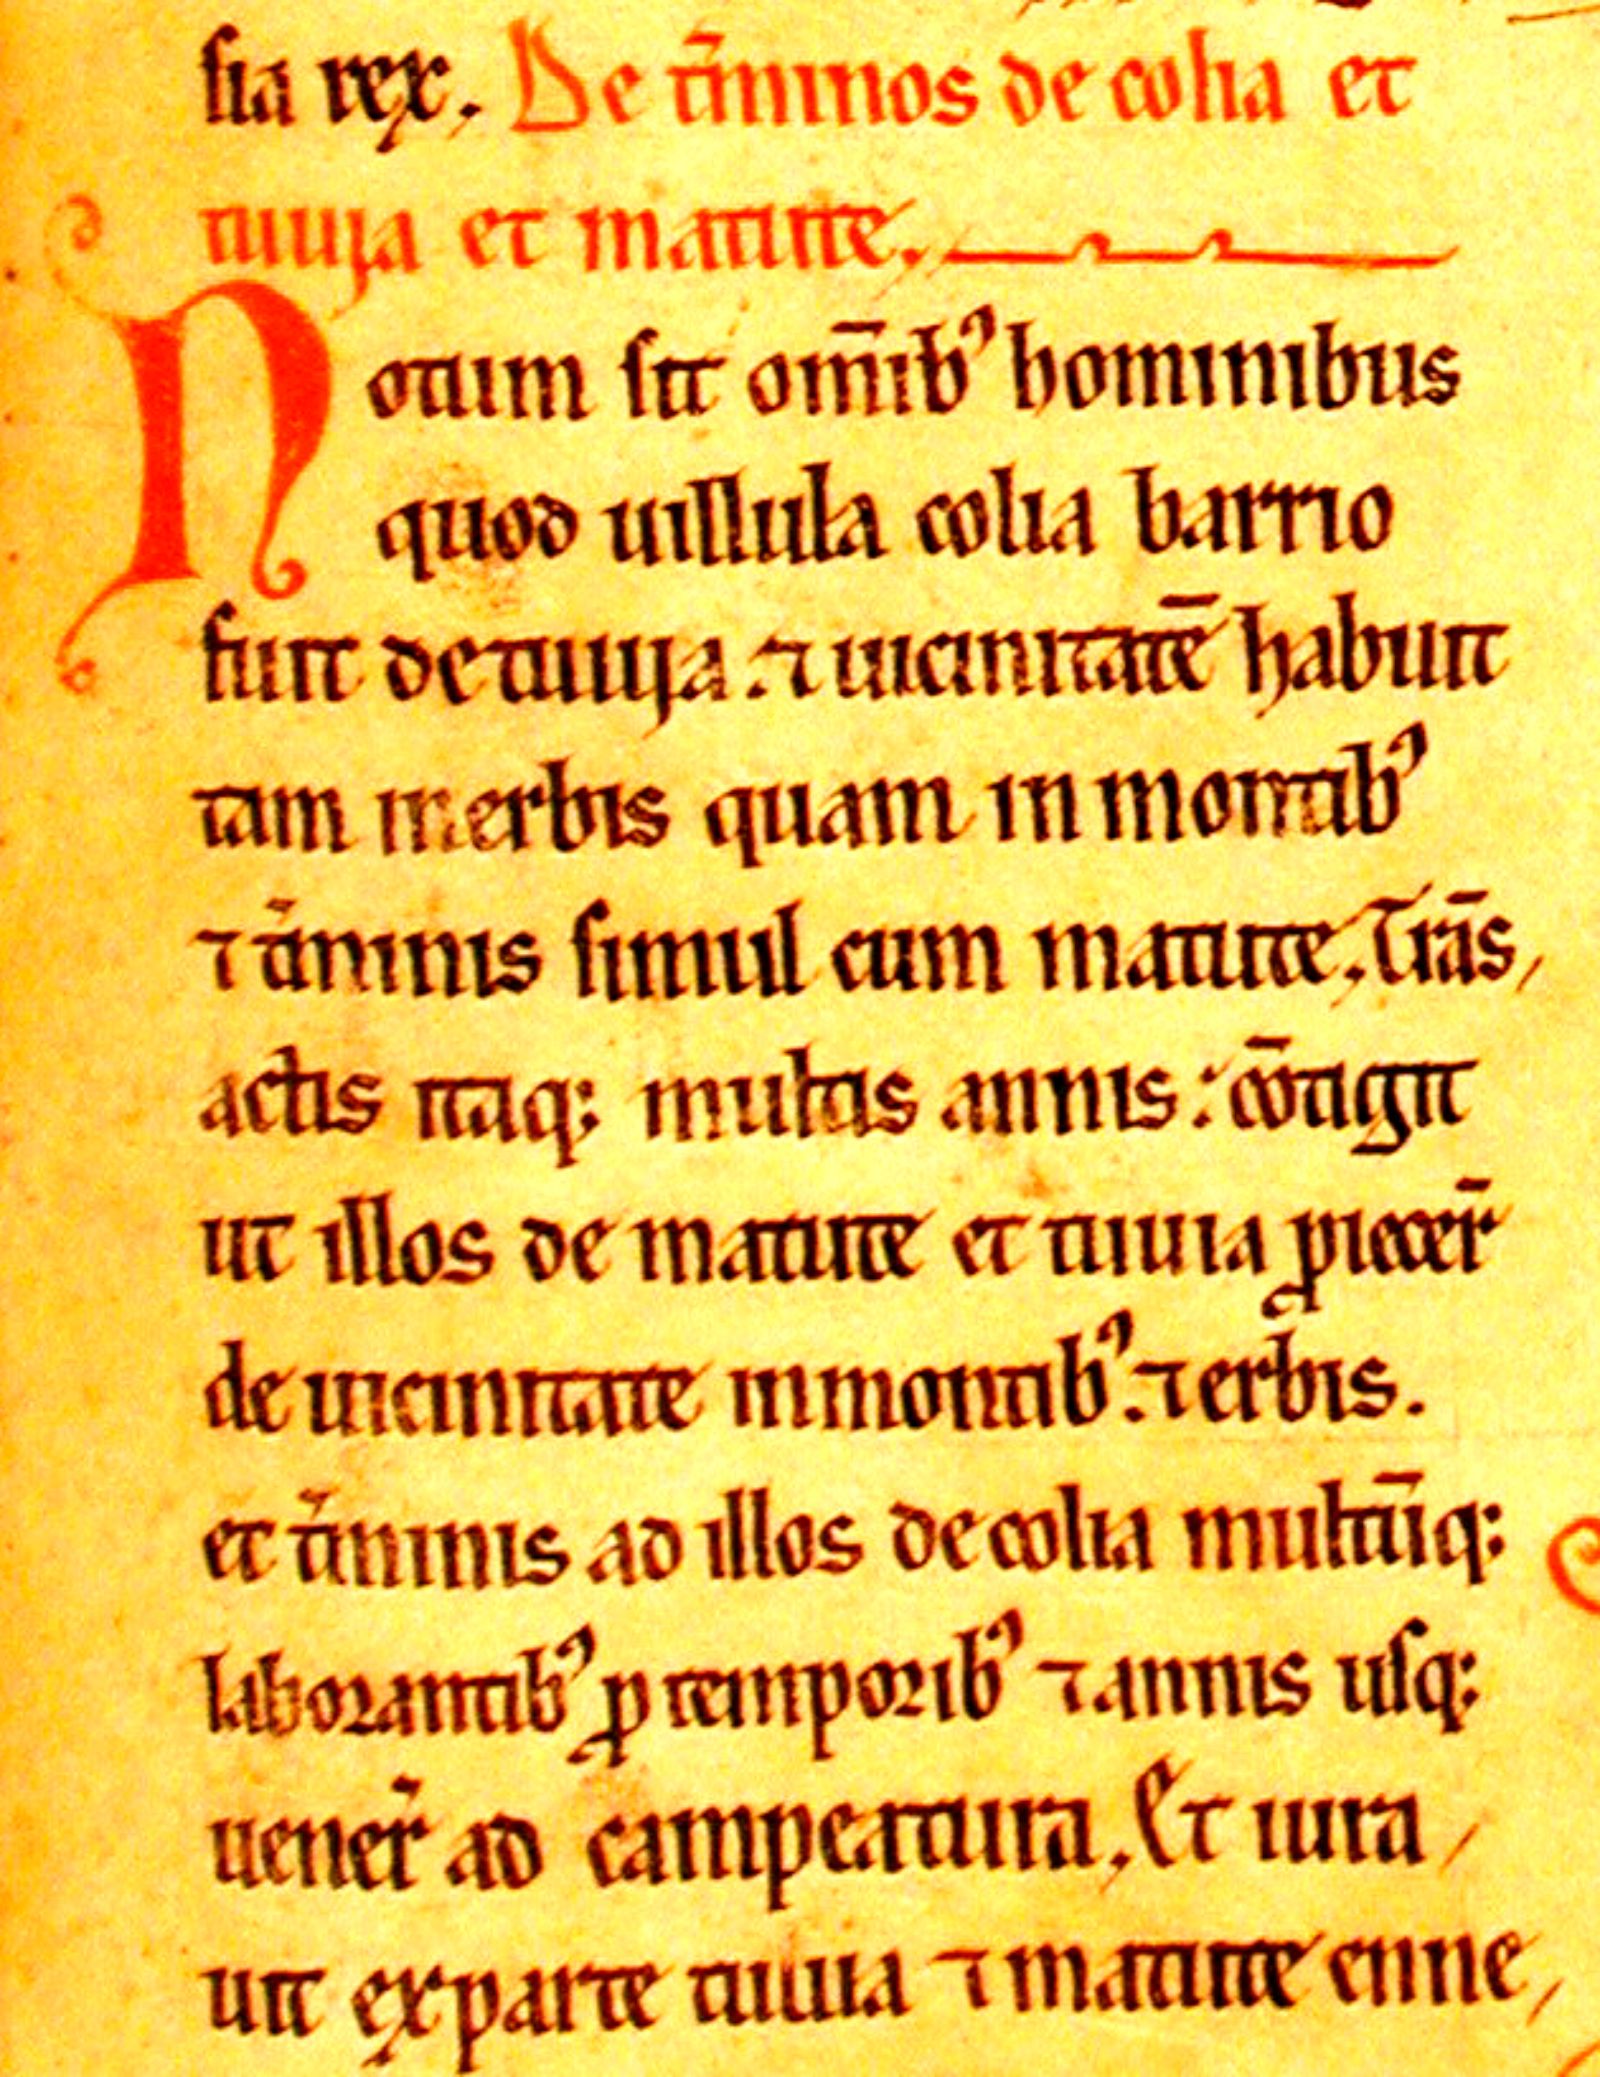 sia rex. De t̄minos de colia et
tiuuja et matute.
Notum sit om̄ibꝰ hominibus
quod uillula colia barrio
fuit de tiuuja: ⁊ uicinitatē habuit
tam in erbis quam in montibꝰ
⁊ t̄minis simul cum matute. Trās,
actis itaq; multis annis: cōtigit
ut illos de matute et tiuuia ꝓicer̄
de uicinitate in montibꝰ: ⁊ erbis.
et t̄minis ad illos de colia multūq;
laborantibꝰ ꝓ temporibꝰ ⁊ annis usq;
uener̄ ad campeatura. Et iura /
uit ex parte tiuuia ⁊ matute enne,